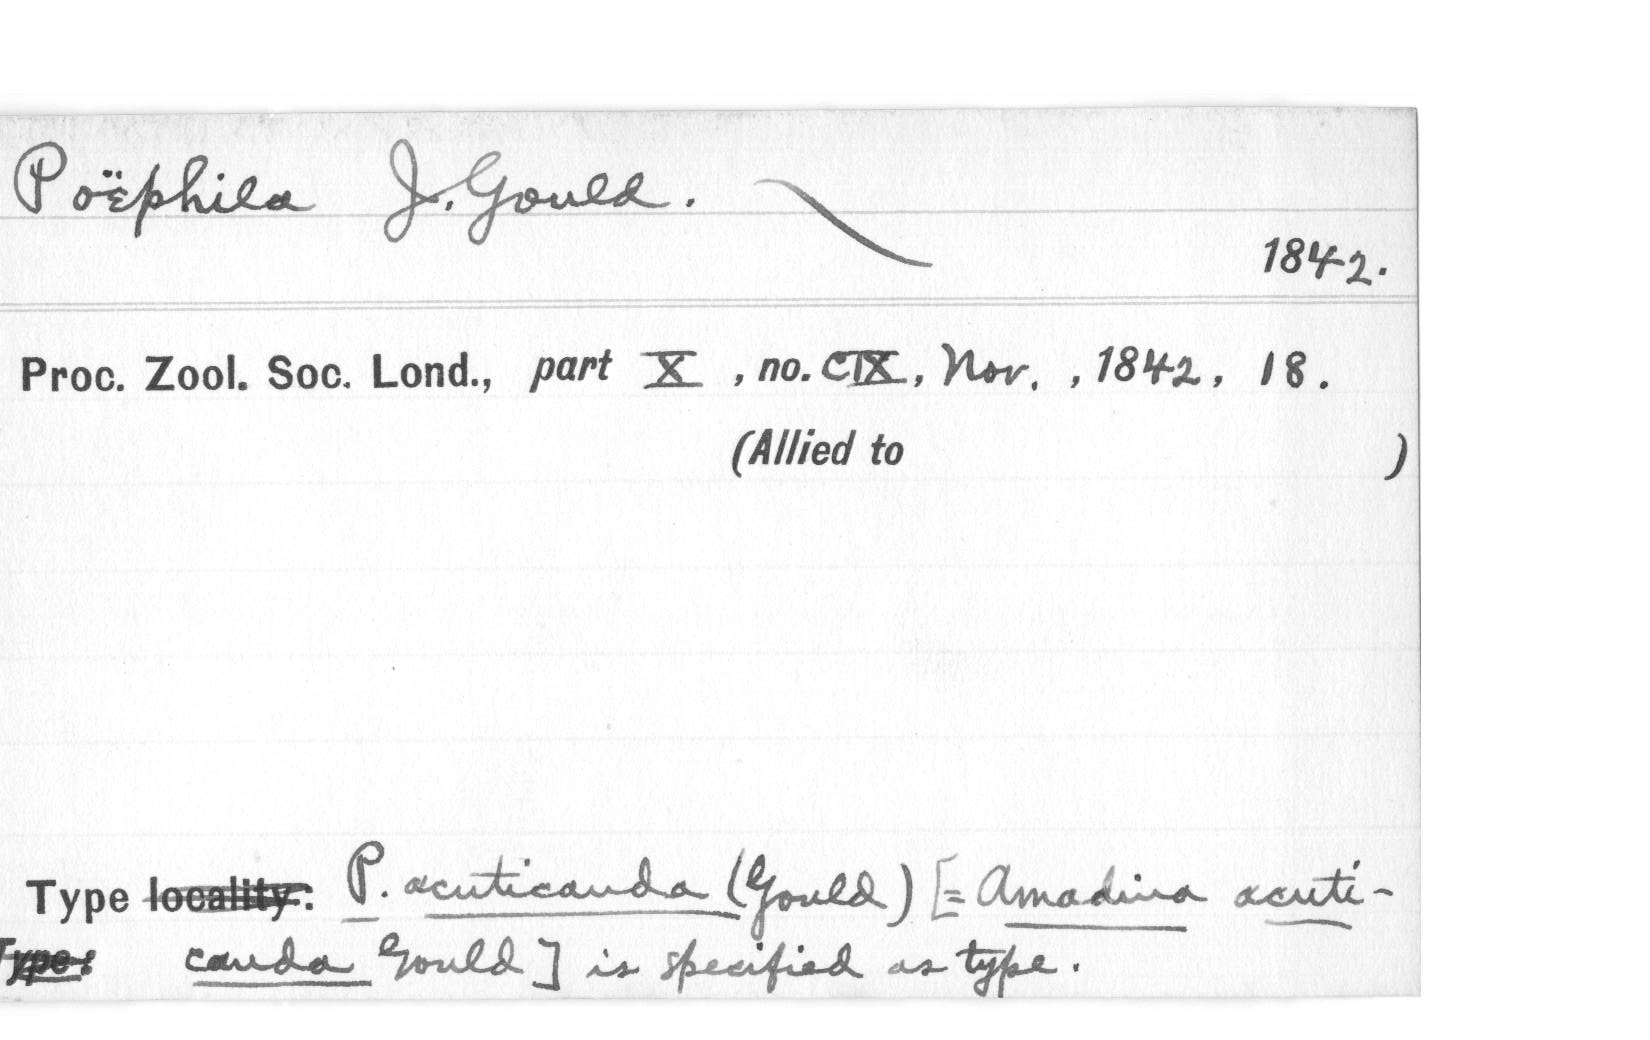 Poëphila J. Gould.
1842.
Proc. Zool. Soc. Lond., part X , no. CIX, Nov. , 1842, 18.
(Allied to )
Type locality: P. acuticauda (Gould) [= Amadina acuti-
Type: cauda Gould] is specified as type.